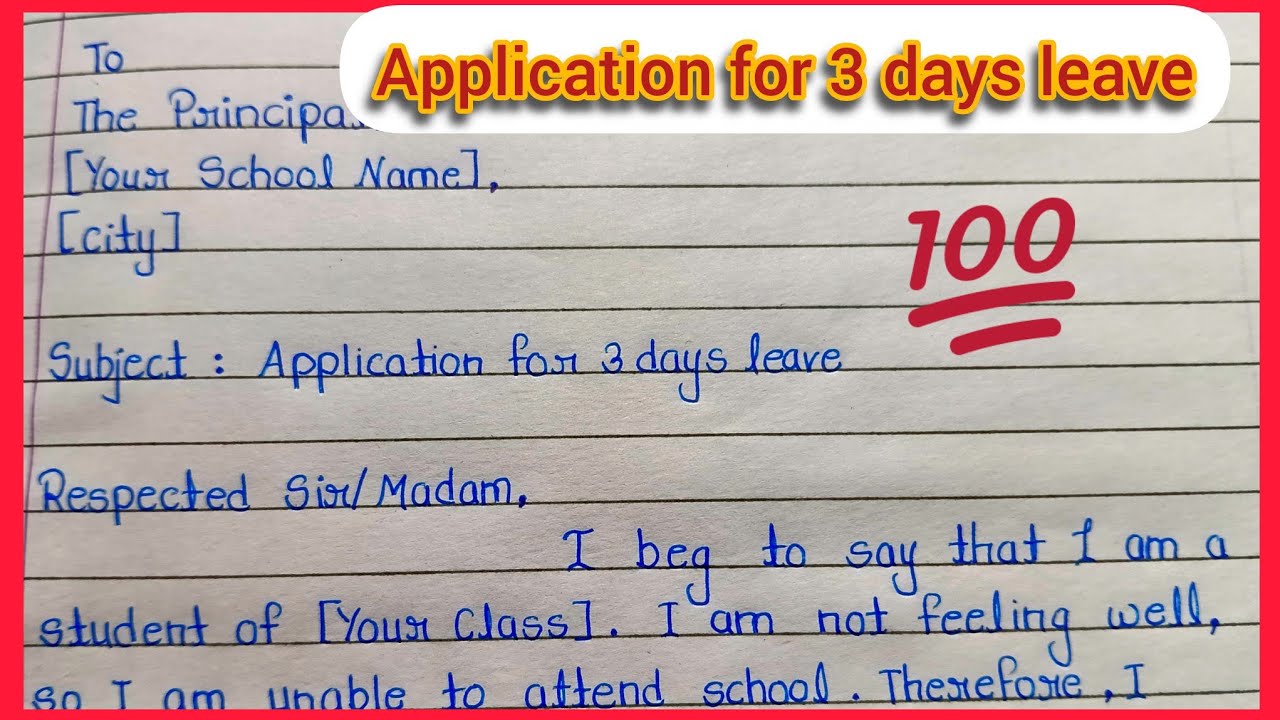 Application for 3 days leave
To
The Principal
[Your School Name],
[city]
100
Subject : Application for 3 days leave
Respected Sir/Madam,
I beg to say that I am a
student of [Your Class]. I am not feeling well,
so I am unable to attend school. Therefore, I